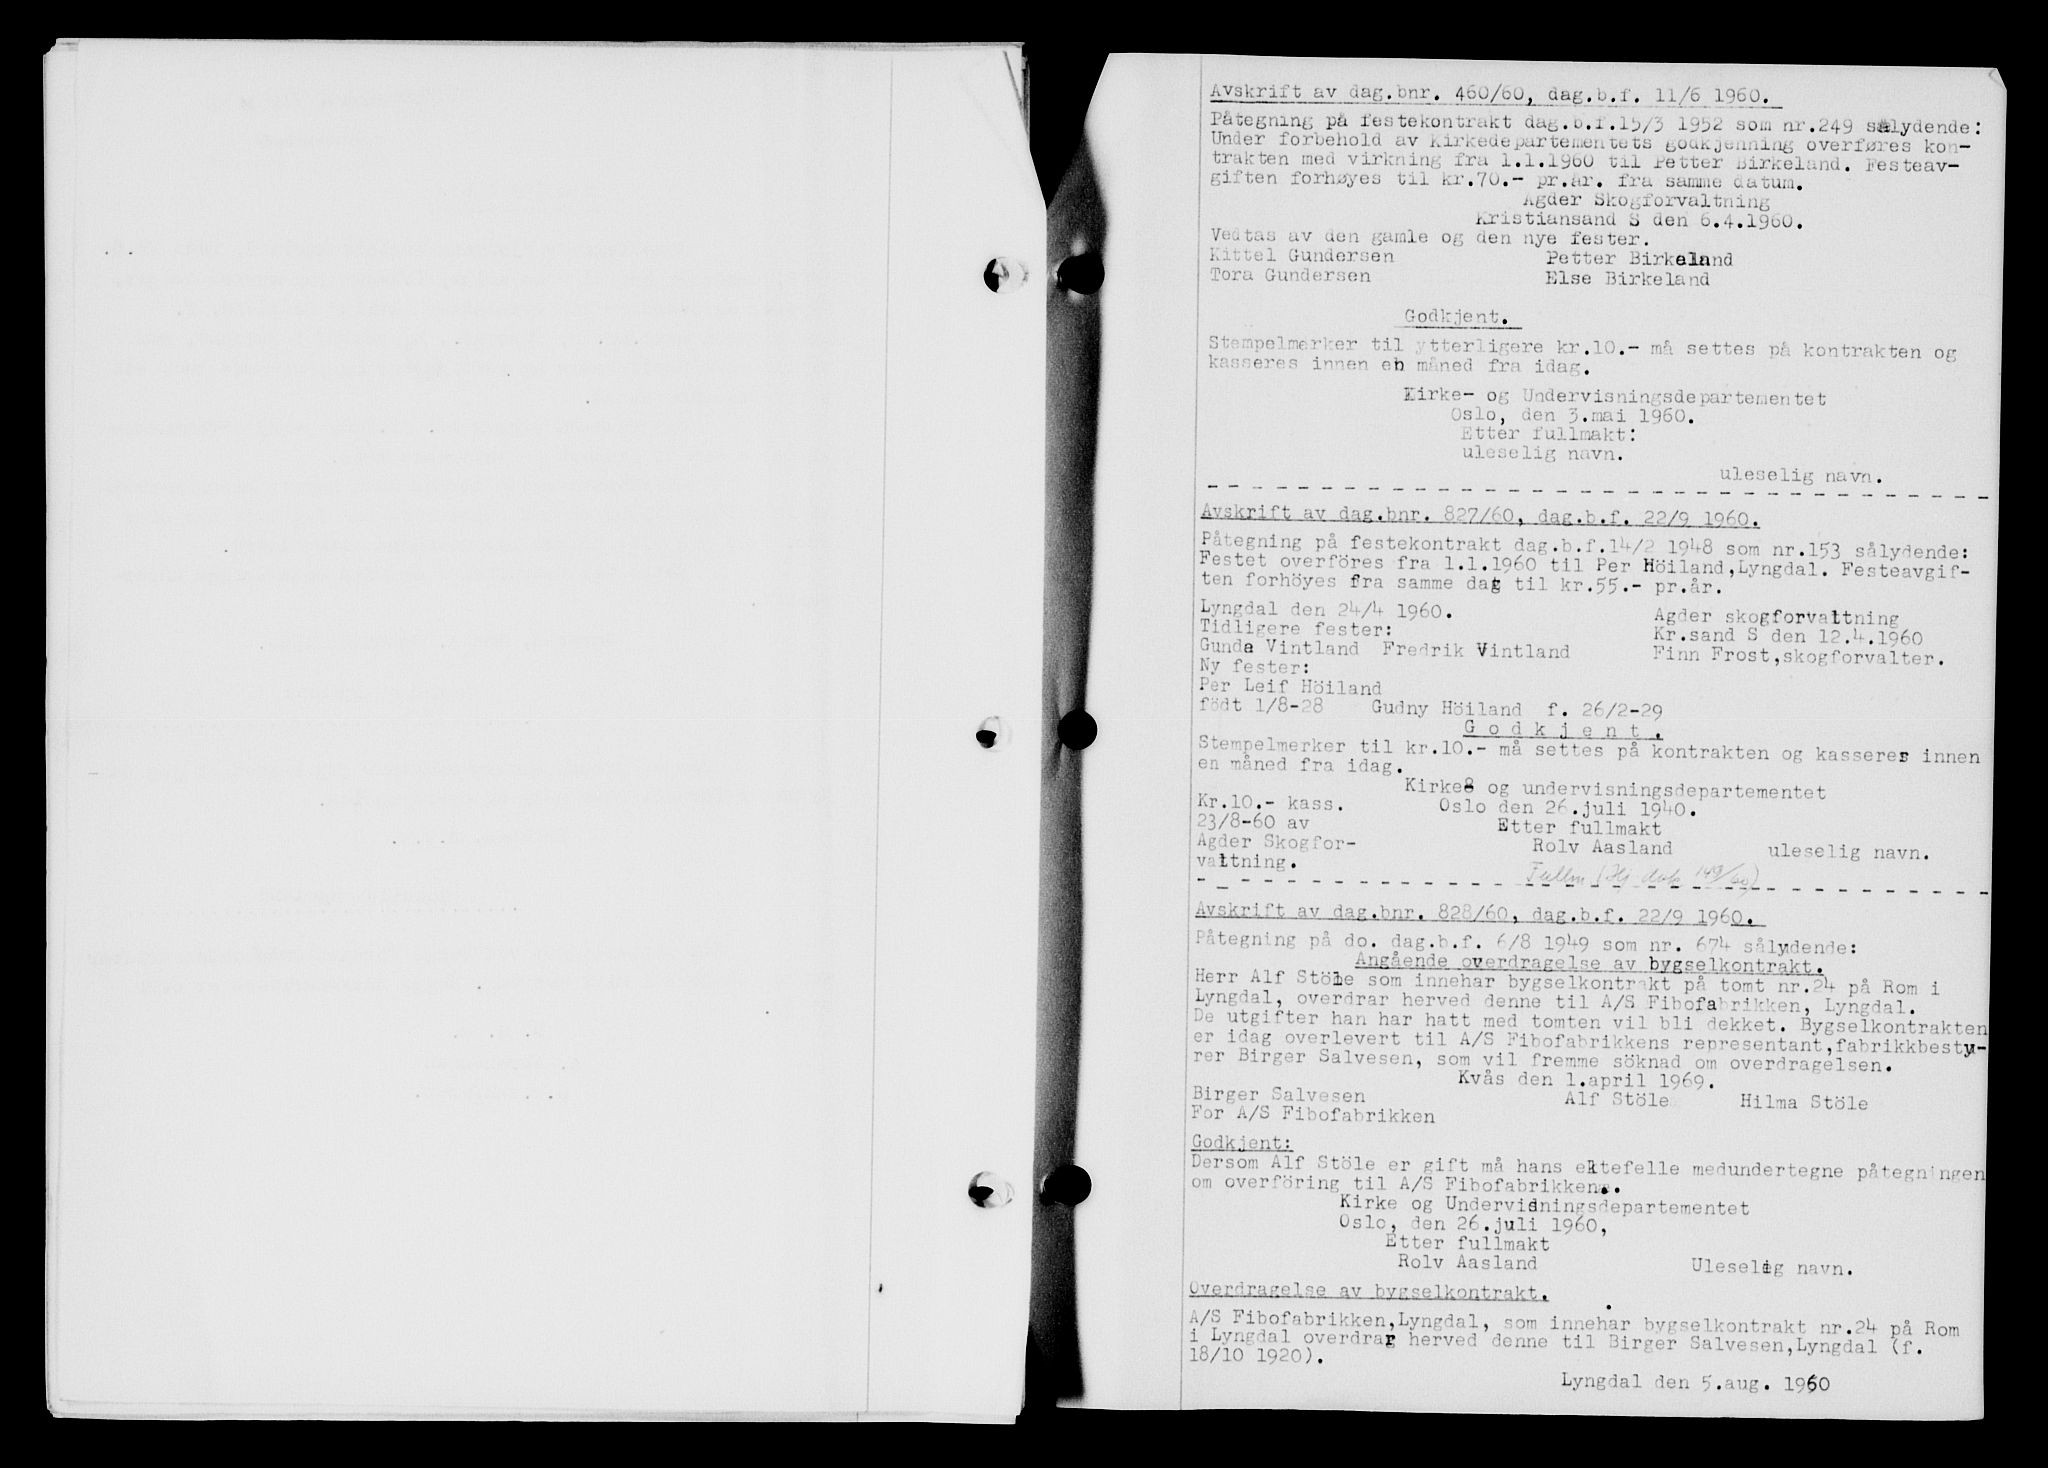 Avskrift av dag.bnr. 460/60, dag.b.f. 11/6 1960.
Påtegning på festekontrakt dag.b.f.15/3 1952 som nr.249 sålydende:
Under forbehold av Kirkedepartementets godkjenning overføres kon-
trakten med virkning fra 1.1.1960 til Petter Birkeland. Festeav-
giften forhøyes til kr.70.- pr.år. fra samme datum.
Agder Skogforvaltning
Kristiansand S den 6.4.1960.
Vedtas av den gamle og den nye fester.
Kittel Gundersen Petter Birkeland
Tora Gundersen Else Birkeland
Godkjent.
Stempelmerker til ytterligere kr.10.- må settes på kontrakten og
kasseres innen en måned fra idag.
Kirke- og Undervisningsdepartementet
Oslo, den 3.mai 1960.
Etter fullmakt:
uleselig navn.
uleselig navn.
Avskrift av dag.bnr. 827/60, dag.b.f. 22/9 1960.
Påtegning på festekontrakt dag.b.f.14/2 1948 som nr.153 sålydende:
Festet overföres fra 1.1.1960 til Per Höiland,Lyngdal. Festeavgif-
ten forhöyes fra samme dag til kr.55.- pr.år.
Lyngdal den 24/4 1960. Agder skogforvaltning
Tidligere fester: Kr.sand S den 12.4.1960
Gunda Vintland Fredrik Vintland Finn Frost,skogforvalter.
Ny fester:
Per Leif Höiland
födt 1/8-28 Gudny Höiland f. 26/2-29
G o d k j e n t .
Stempelmerker til kr.10.- må settes på kontrakten og kasseres innen
en måned fra idag.
Kirke- og undervisningsdepartementet
Kr.10.- kass. Oslo den 26.juli 1940.
23/8-60 av Etter fullmakt
Agder Skogfor- Rolv Aasland uleselig navn.
valtning.
Fullm (Hj dok 149/60)
Avskrift av dag.bnr. 828/60, dag.b.f. 22/9 1960.
Påtegning på do. dag.b.f. 6/8 1949 som nr. 674 sålydende:
Angående overdragelse av bygselkontrakt.
Herr Alf Stöle som innehar bygselkontrakt på tomt nr.24 på Rom i
Lyngdal, overdrar herved denne til A/S Fibofabrikken, Lyngdal.
De utgifter han har hatt med tomten vil bli dekket. Bygselkontrakten
er idag overlevert til A/S Fibofabrikkens representant,fabrikkbesty-
rer Birger Salvesen, som vil fremme söknad om overdragelsen.
Kvås den 1.april 1969.
Birger Salvesen Alf Stöle Hilma Stöle
For A/S Fibofabrikken
Godkjent:
Dersom Alf Stöle er gift må hans ektefelle medundertegne påtegningen
om overföring til A/S Fibofabrikken..
Kirke og Undervisningsdepartementet
Oslo, den 26.juli 1960,
Etter fullmakt
Rolv Aasland Uleselig navn.
Overdragelse av bygselkontrakt.
A/S Fibofabrikken,Lyngdal, som innehar bygselkontrakt nr.24 på Rom
i Lyngdal overdrar herved denne til Birger Salvesen,Lyngdal (f.
18/10 1920).
Lyngdal den 5.aug. 1960